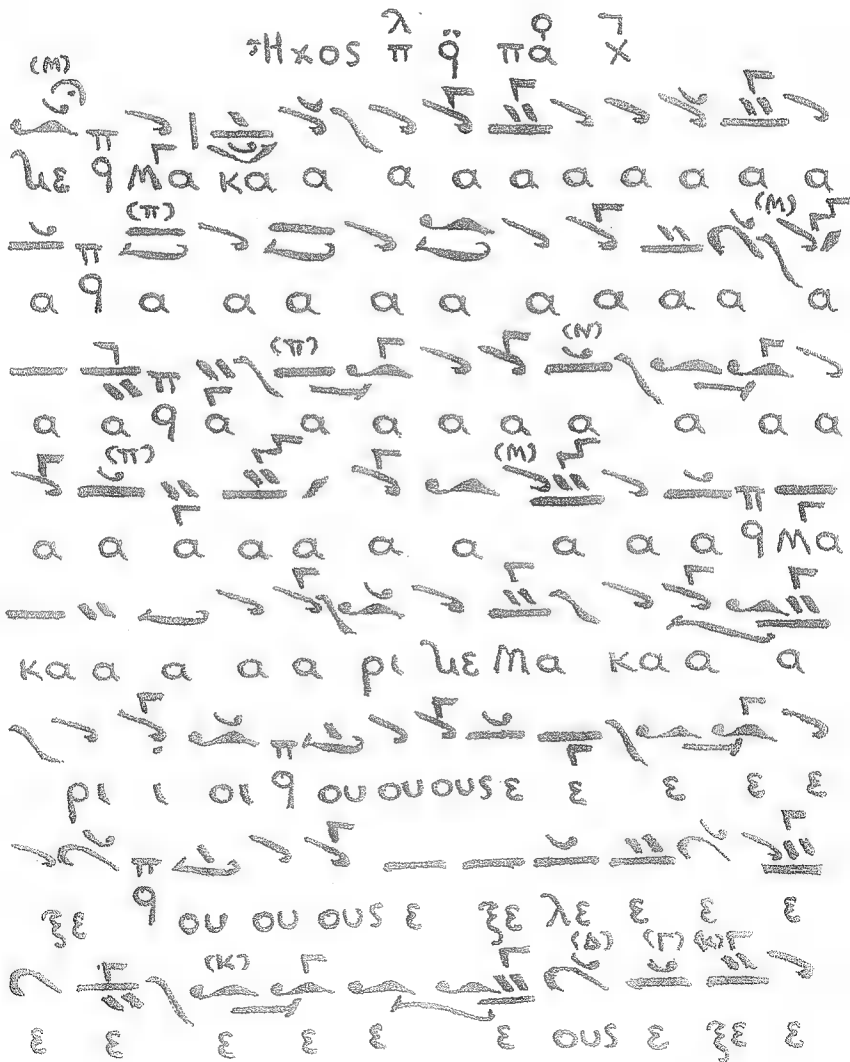 Ἦχος λ π q̈ πα
(Μ)
q Μα κα α α α α α α α α α
(π) (Μ)
α q α α α α α α α α α α
(π) (Ν)
α α q α α α α α α α α α
(π) (Μ)
α α α α α α α α α α q Μα
κα α α α α ρι Μα κα α α
ρι ι οι q ου ου ους ε ε ε ε ε
ξε q ου ου ους ε ξε λε ε ε ε
(Κ) (Δ) (Γ) (Κ)
ε ε ε ε ε ε ους ε ξε ε